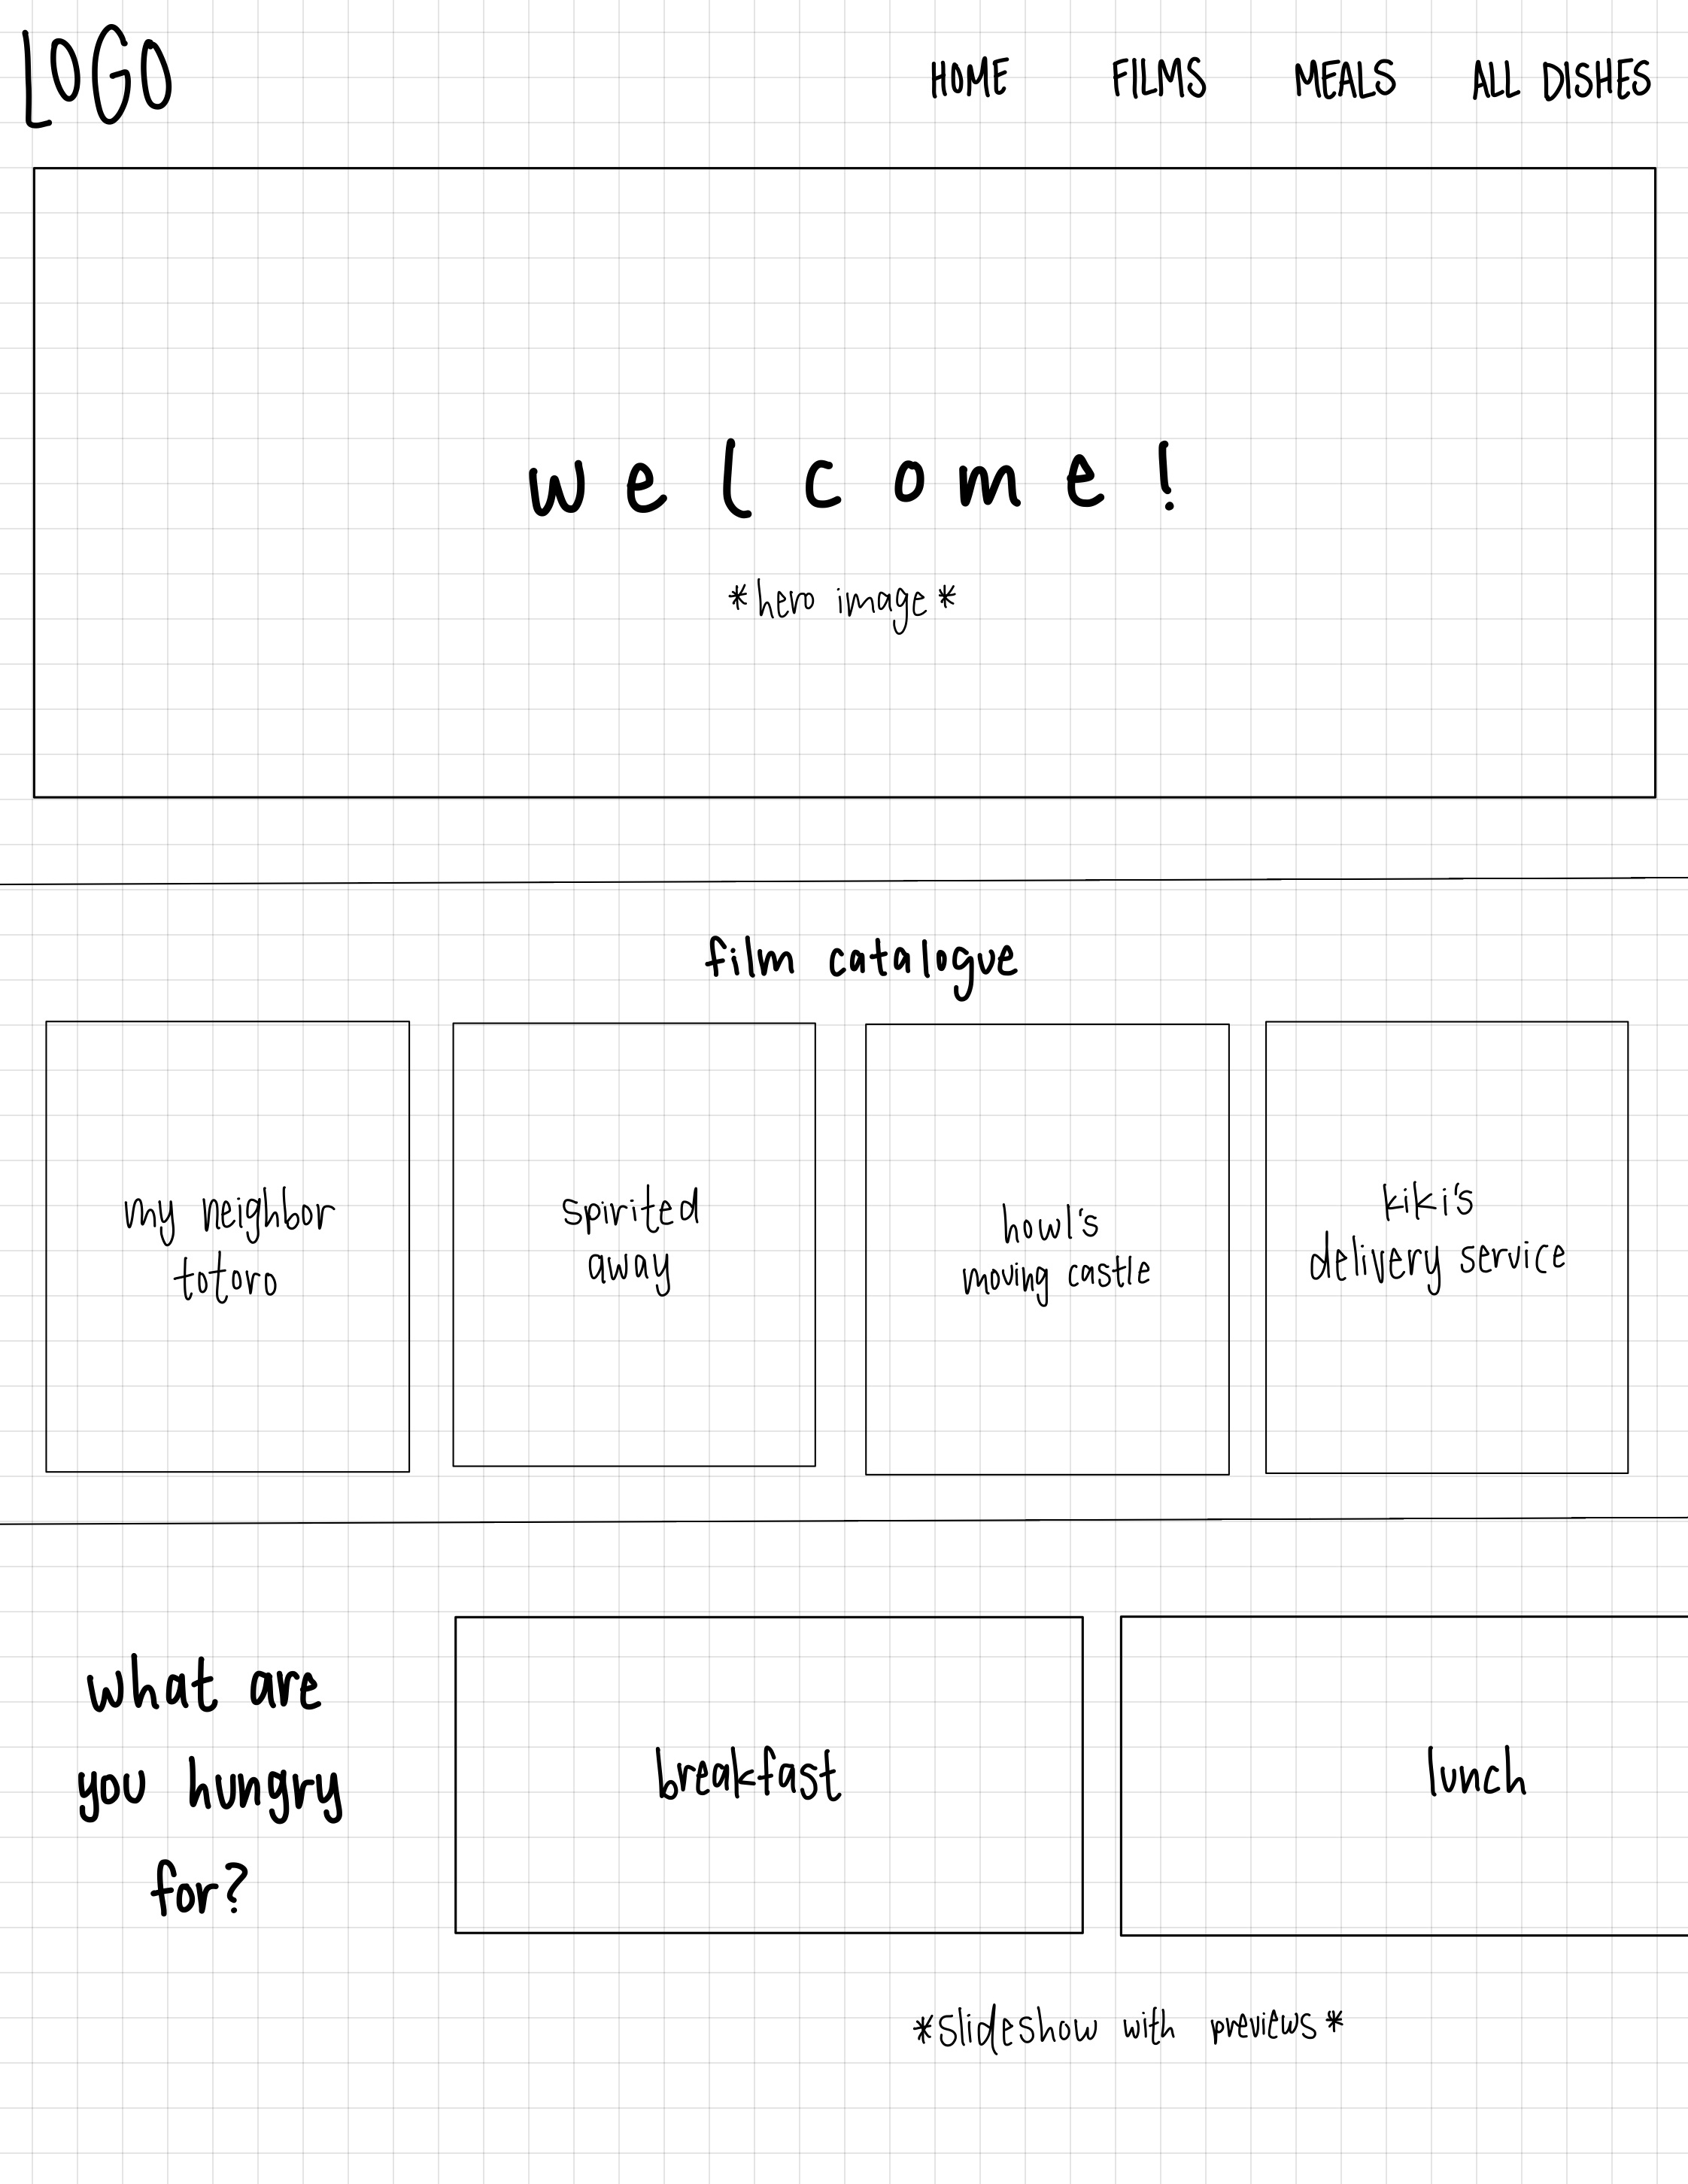 LOGO
HOME FILMS MEALS ALL DISHES
welcome!
*hero image*
film catalogue
my neighbor
totoro
spirited
away
howl's
moving castle
kiki's
delivery service
what are
you hungry
for?
breakfast
lunch
*slideshow with previews*